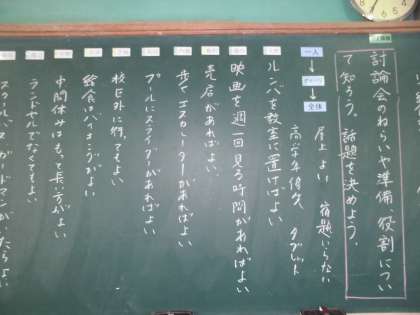 討論会のねらいや準備、役割につい
て知ろう。話題を決めよう。
一人
全体
屋上 よい 宿題いらない
高学年 タブレット
ルンバを教室に置けばよい
映画を週一回見る時間があればよい
売店があればよい
エスカレーターがあればよい
プールにスライダーがあればよい
校区外に行ってもよい
給食はバイキングがよい
中間休みはもって長い方がよい
ランドセルでなくてもよい
スクールガードマンがいたらよい